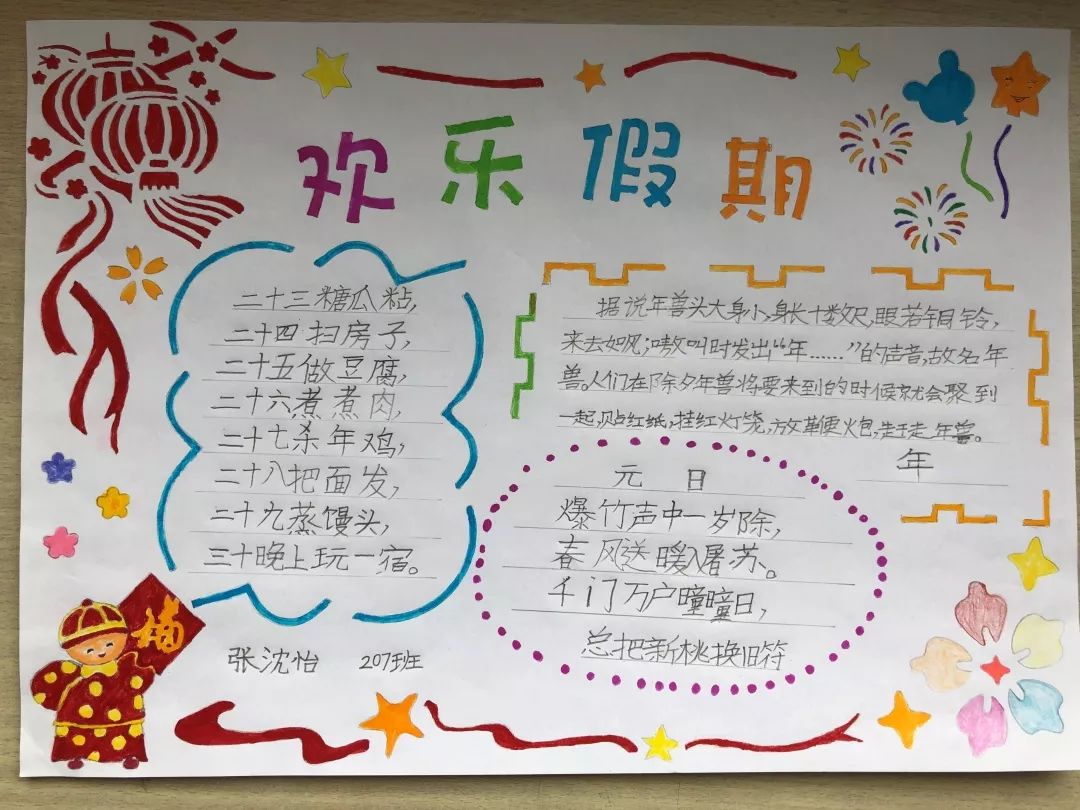 欢乐假期
二十三糖瓜粘,
二十四扫房子,
二十五做豆腐,
二十六煮煮肉,
二十七杀年鸡,
二十八把面发,
二十九蒸馒头,
三十晚上玩一宿。
张沈怡 207班
据说年兽头大身小,身长十数尺,眼若铜铃,
来去如风;嗷叫时发出“年……”的声音,故名年
兽。人们在除夕年兽将要来到的时候就会聚到
一起,贴红纸,挂红灯笼,放革便火包,赶走年兽。
年
元日
爆竹声中一岁除,
春风送暖入屠苏。
千门万户曈曈日,
总把新桃换旧符
福